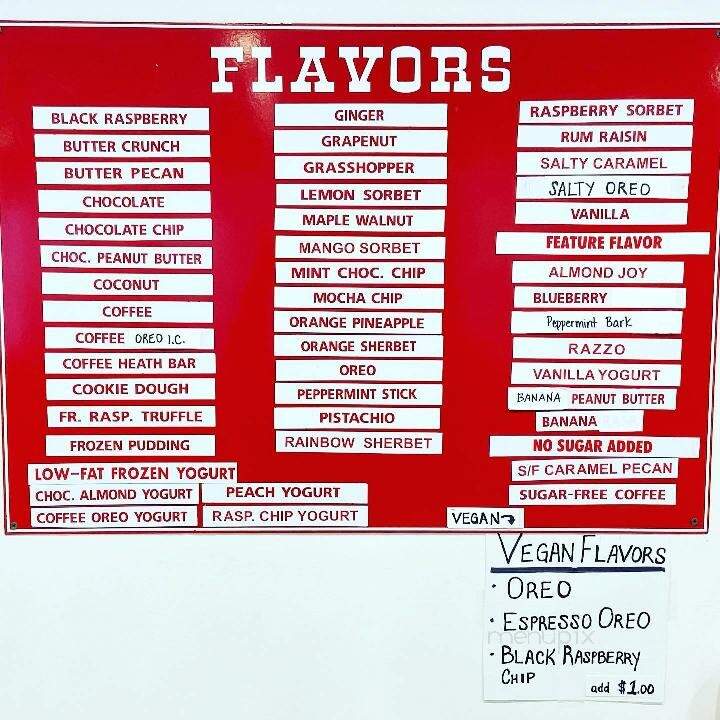 FLAVORS
BLACK RASPBERRY
BUTTER CRUNCH
BUTTER PECAN
CHOCOLATE
CHOCOLATE CHIP
CHOC. PEANUT BUTTER
COCONUT
COFFEE
COFFEE OREO I.C.
COFFEE HEATH BAR
COOKIE DOUGH
FR. RASP. TRUFFLE
FROZEN PUDDING
LOW-FAT FROZEN YOGURT
CHOC. ALMOND YOGURT
COFFEE OREO YOGURT
PEACH YOGURT
RASP. CHIP YOGURT
GINGER
GRAPENUT
GRASSHOPPER
LEMON SORBET
MAPLE WALNUT
MANGO SORBET
MINT CHOC. CHIP
MOCHA CHIP
ORANGE PINEAPPLE
ORANGE SHERBET
OREO
PEPPERMINT STICK
PISTACHIO
RAINBOW SHERBET
RASPBERRY SORBET
RUM RAISIN
SALTY CARAMEL
SALTY OREO
VANILLA
FEATURE FLAVOR
ALMOND JOY
BLUEBERRY
Peppermint Bark
RAZZO
VANILLA YOGURT
BANANA PEANUT BUTTER
BANANA
NO SUGAR ADDED
S/F CARAMEL PECAN
SUGAR-FREE COFFEE
VEGAN→
VEGAN FLAVORS
· OREO
· ESPRESSO OREO
menupix
· BLACK RASPBERRY
CHIP
add $1.00